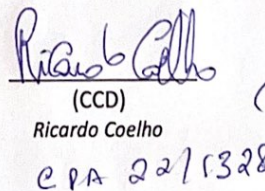 Ricardo Coelho
(CCD)
Ricardo Coelho
CPA 22/1328